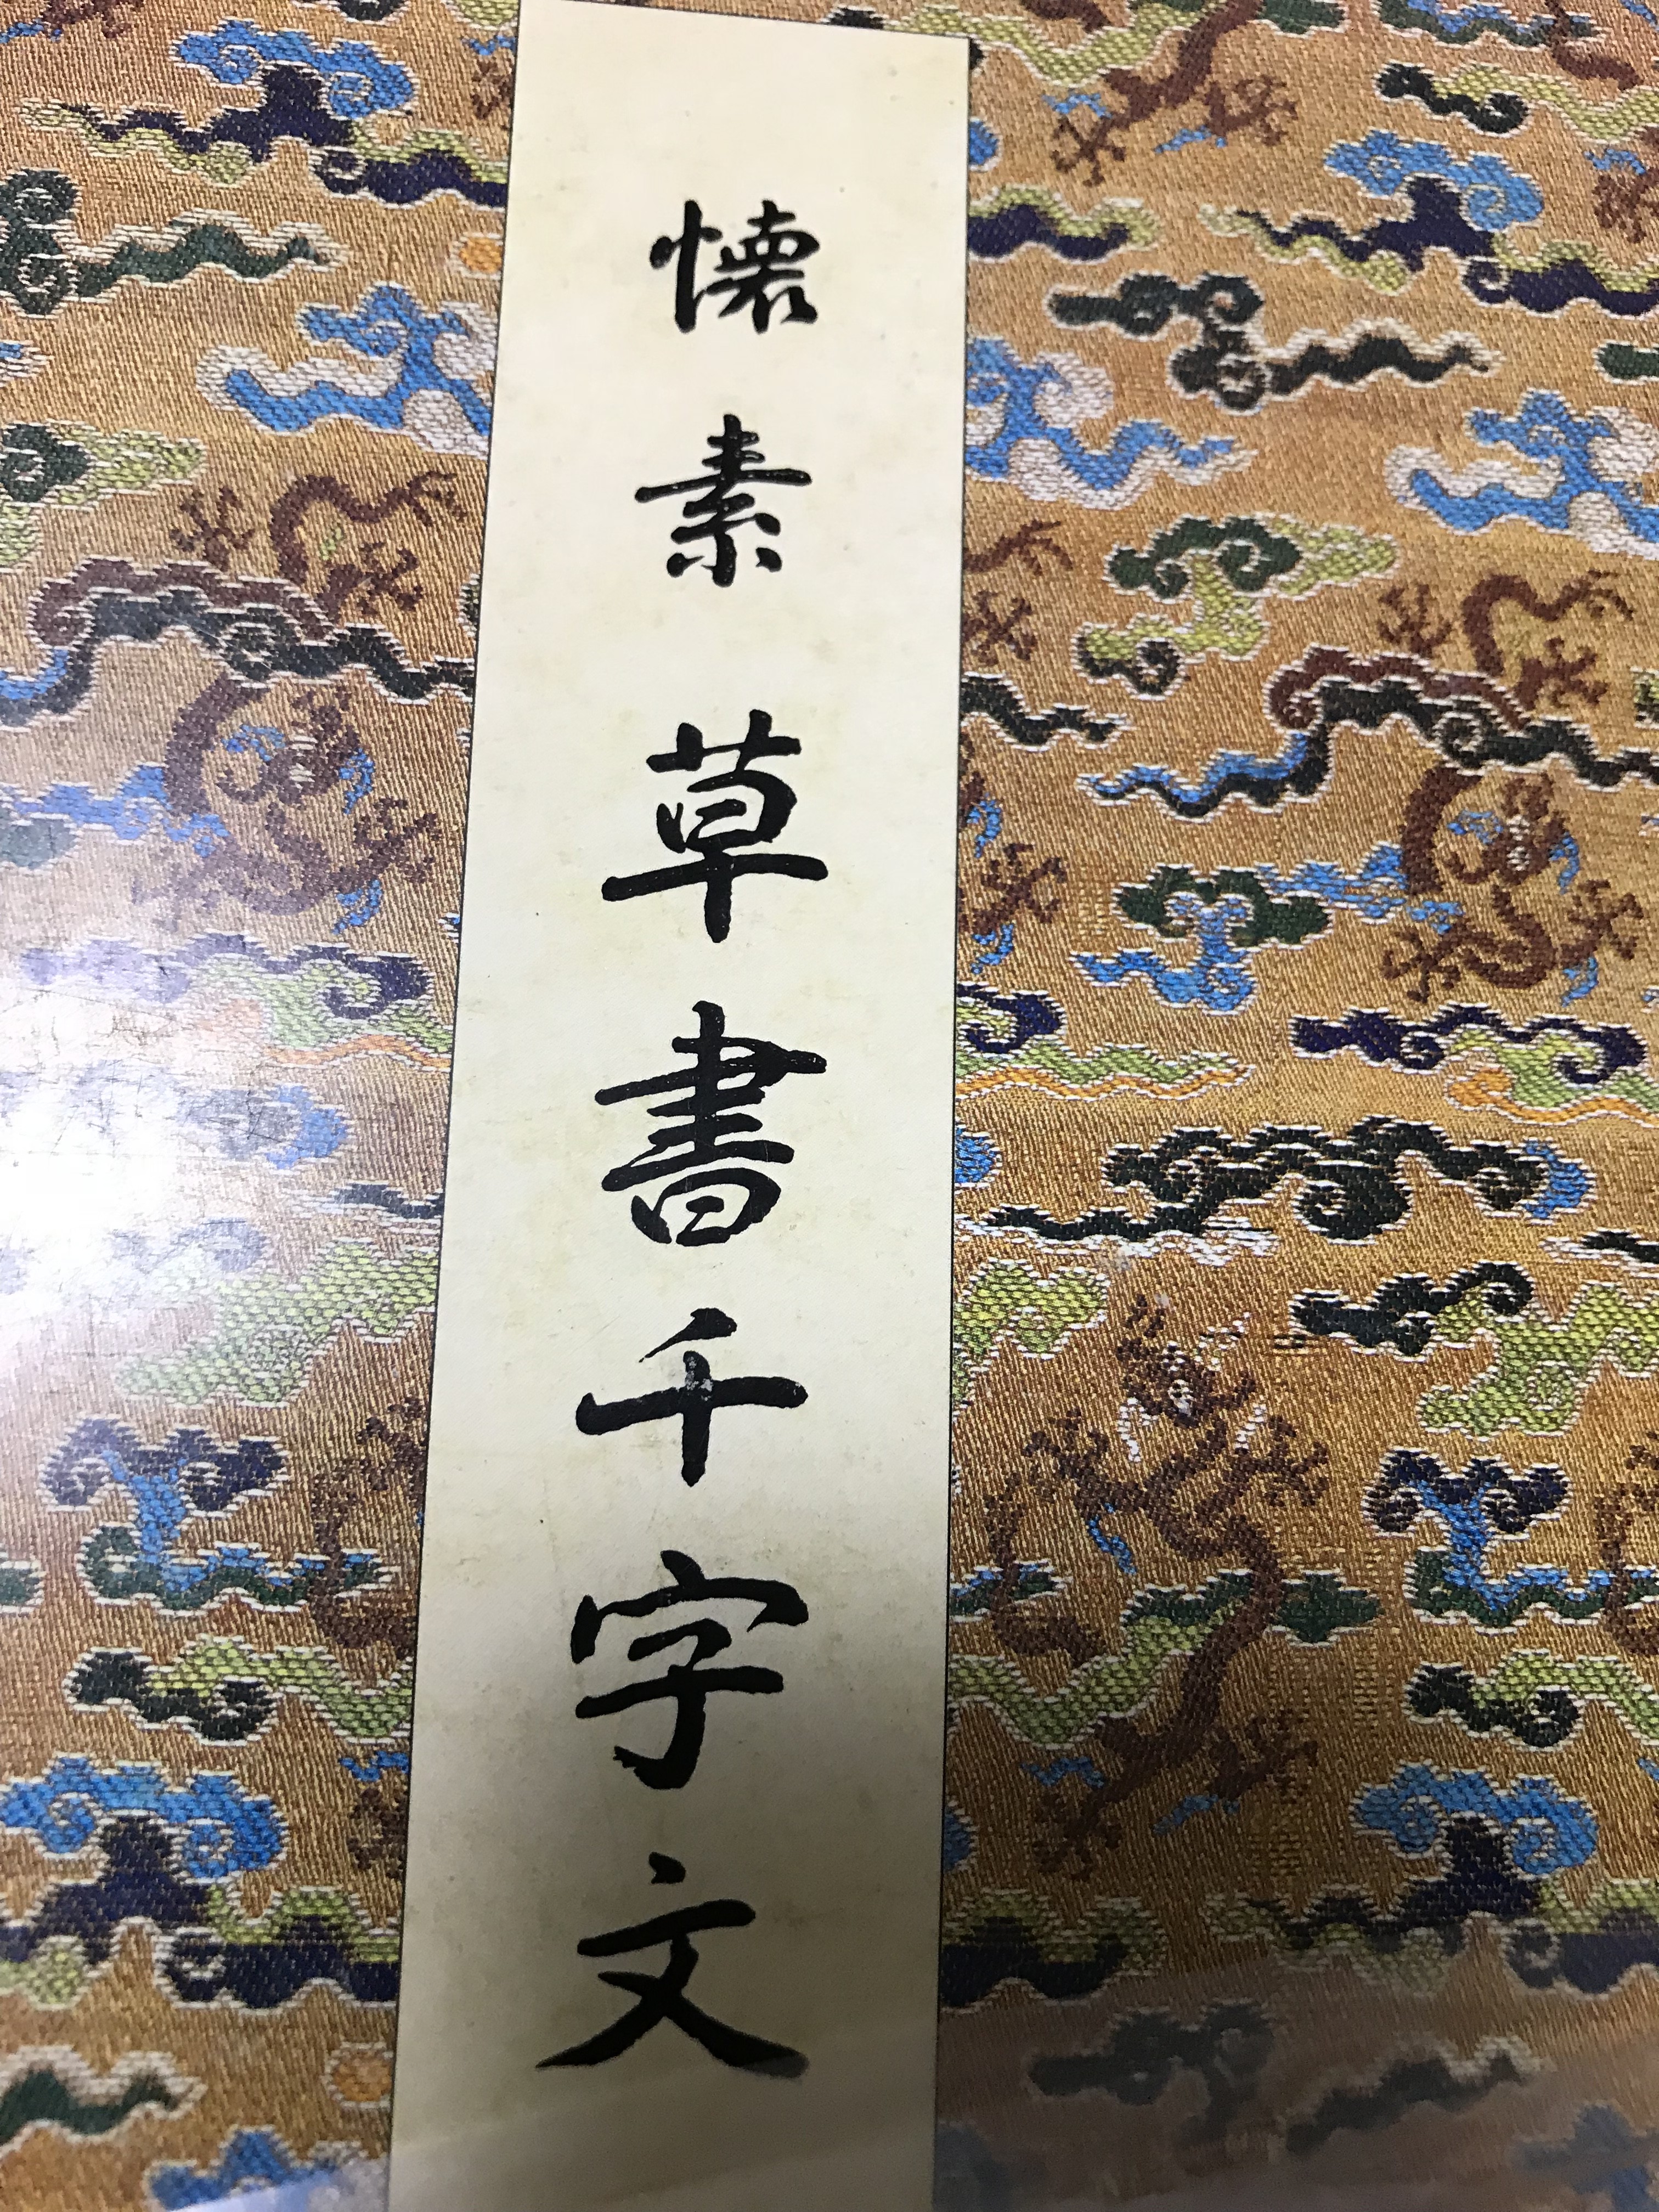 懐素草書千字文